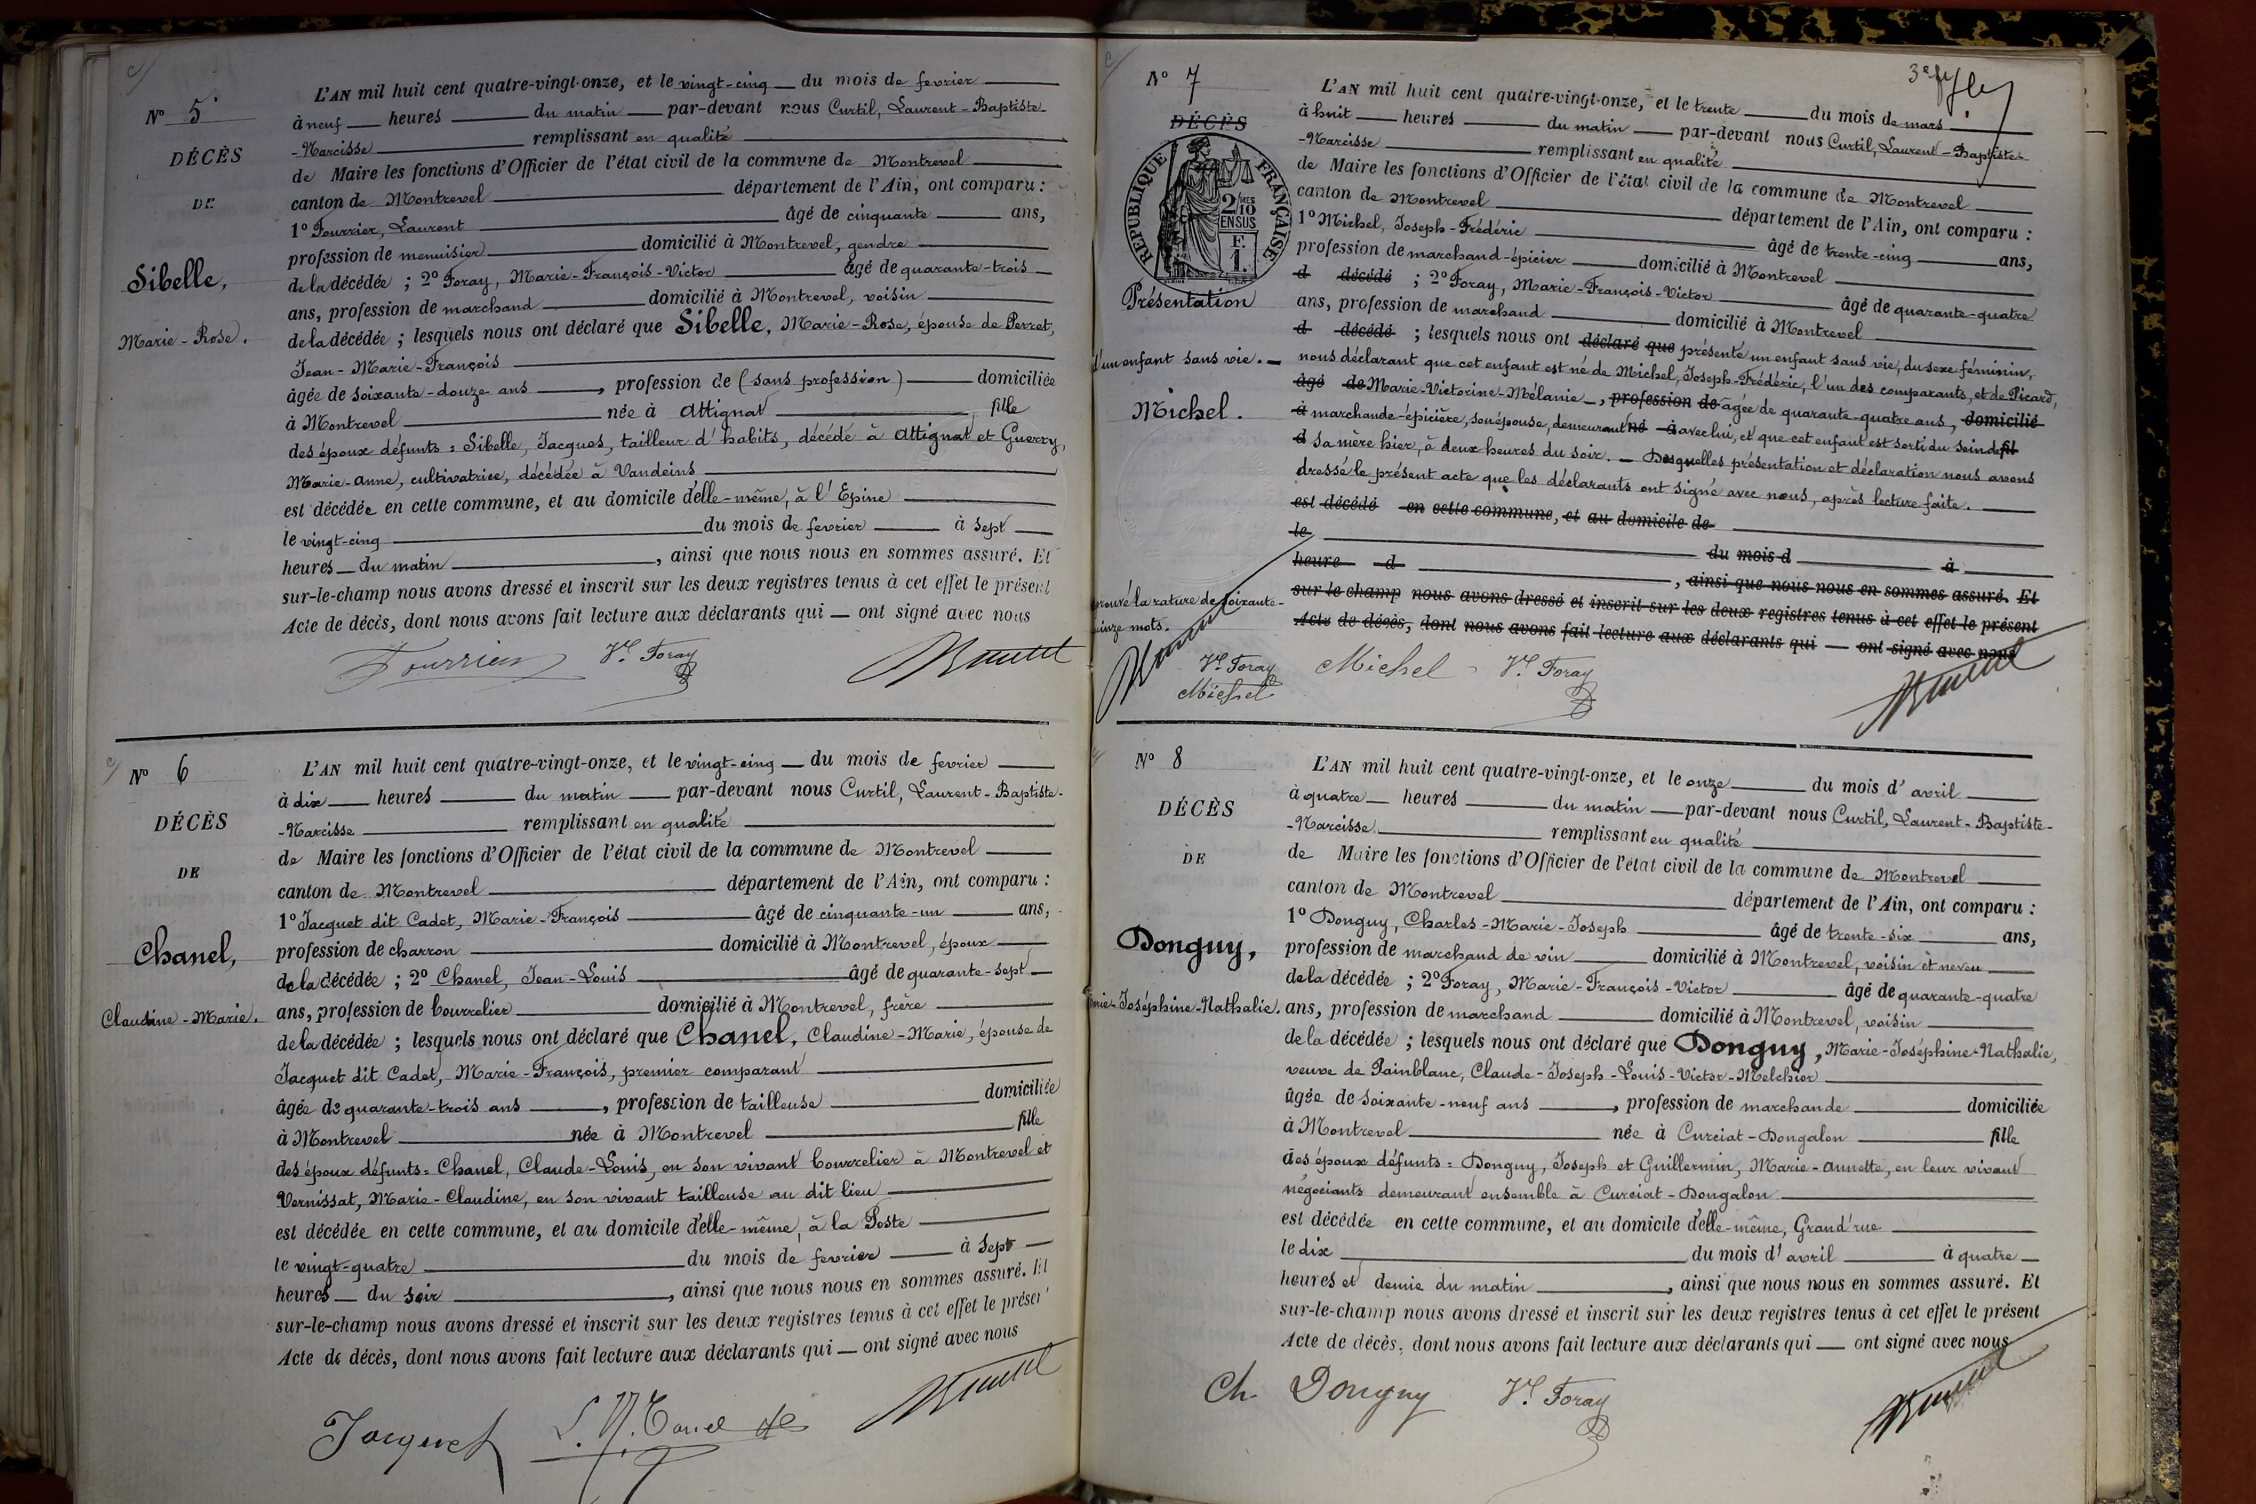 c/
N° 5
DÉCÈS
DE
Sibelle,
Marie-Rose.
L'AN mil huit cent quatre-vingt-onze, et le vingt-cinq du mois de fevrier
à neuf heures du matin par-devant nous Curtil, Laurent-Baptiste-
-Narcisse remplissant en qualité
de Maire les fonctions d'Officier de l'état civil de la commune de Montrevel
canton de Montrevel département de l'Ain, ont comparu :
1° Fourrier, Laurent âgé de cinquante ans,
profession de menuisier domicilié à Montrevel, gendre
de la décédée ; 2° Foray, Marie-François-Victor âgé de quarante-trois
ans, profession de marchand domicilié à Montrevel, voisin
de la décédée ; lesquels nous ont déclaré que Sibelle, Marie-Rose, épouse de Perret,
Jean-Marie-François
âgée de soixante-douze ans, profession de (sans profession) domiciliée
à Montrevel née à Attignat fille
des époux défunts : Sibelle, Jacques, tailleur d'habits, décédé à Attignat et Guerry,
Marie-Anne, cultivatrice, décédée à Vandeins
est décédée en cette commune, et au domicile d'elle-même, à l'Epine
le vingt-cinq du mois de fevrier à sept
heures du matin, ainsi que nous nous en sommes assuré. Et
sur-le-champ nous avons dressé et inscrit sur les deux registres tenus à cet effet le présent
Acte de décès, dont nous avons fait lecture aux déclarants qui — ont signé avec nous
Fourrier Vr. Foray
c/
N° 6
DÉCÈS
DE
Chanel,
Claudine-Marie.
L'AN mil huit cent quatre-vingt-onze, et le vingt-cinq du mois de fevrier
à dix heures du matin par-devant nous Curtil, Laurent-Baptiste-
-Narcisse remplissant en qualité
de Maire les fonctions d'Officier de l'état civil de la commune de Montrevel
canton de Montrevel département de l'Ain, ont comparu :
1° Jacquet dit Cadet, Marie-François âgé de cinquante-un ans,
profession de charron domicilié à Montrevel, époux
de la décédée ; 2° Chanel, Jean-Louis âgé de quarante-sept
ans, profession de bourrelier domicilié à Montrevel, frère
de la décédée ; lesquels nous ont déclaré que Chanel, Claudine-Marie, épouse de
Jacquet dit Cadet, Marie-François, premier comparant
âgée de quarante-trois ans, profession de tailleuse domiciliée
à Montrevel née à Montrevel fille
des époux défunts : Chanel, Claude-Louis, en son vivant bourrelier à Montrevel et
Vernissat, Marie-Claudine, en son vivant tailleuse au dit lieu
est décédée en cette commune, et au domicile d'elle-même, à la Poste
le vingt-quatre du mois de fevrier à sept
heures du soir, ainsi que nous nous en sommes assuré. Et
sur-le-champ nous avons dressé et inscrit sur les deux registres tenus à cet effet le présent
Acte de décès, dont nous avons fait lecture aux déclarants qui — ont signé avec nous
Jacquet
N° 7
DÉCÈS
RÉPUBLIQUE FRANÇAISE
2/10 EN SUS
F. 1.
Présentation
d'un enfant sans vie.
Michel.
L'AN mil huit cent quatre-vingt-onze, et le trente du mois de mars
à huit heures du matin par-devant nous Curtil, Laurent-Baptiste-
-Narcisse remplissant en qualité
de Maire les fonctions d'Officier de l'état civil de la commune de Montrevel
canton de Montrevel département de l'Ain, ont comparu :
1° Michel, Joseph-Frédéric âgé de trente-cinq ans,
profession de marchand-épicier domicilié à Montrevel
d décédé ; 2° Foray, Marie-François-Victor âgé de quarante-quatre
ans, profession de marchand domicilié à Montrevel
d décédé ; lesquels nous ont déclaré que présenté un enfant sans vie, du sexe féminin,
nous déclarant que cet enfant est né de Michel, Joseph-Frédéric, l'un des comparants, et de Picard,
âgé de Marie-Victorine-Mélanie, profession de âgée de quarante-quatre ans, domicilié
à marchande-épicière, son épouse, demeurant né à avec lui, et que cet enfant est sorti du sein de fil
d sa mère hier, à deux heures du soir. — Desquelles présentation et déclaration nous avons
dressé le présent acte que les déclarants ont signé avec nous, après lecture faite.
est décédé en cette commune, et au domicile de
le du mois d à
heure d, ainsi que nous nous en sommes assuré. Et
sur le champ nous avons dressé et inscrit sur les deux registres tenus à cet effet le présent
Acte de décès, dont nous avons fait lecture aux déclarants qui — ont signé avec nous
la rature de soixante-
quinze mots.
Vr. Foray
Michel
Michel Vr. Foray
N° 8
DÉCÈS
DE
Donguy,
Marie-Joséphine-Nathalie.
L'AN mil huit cent quatre-vingt-onze, et le onze du mois d'avril
à quatre heures du matin par-devant nous Curtil, Laurent-Baptiste-
-Narcisse remplissant en qualité
de Maire les fonctions d'Officier de l'état civil de la commune de Montrevel
canton de Montrevel département de l'Ain, ont comparu :
1° Donguy, Charles-Marie-Joseph âgé de trente-six ans,
profession de marchand de vin domicilié à Montrevel, voisin et neveu
de la décédée ; 2° Foray, Marie-François-Victor âgé de quarante-quatre
ans, profession de marchand domicilié à Montrevel, voisin
de la décédée ; lesquels nous ont déclaré que Donguy, Marie-Joséphine-Nathalie,
veuve de Painblanc, Claude-Joseph-Louis-Victor-Melchior
âgée de soixante-neuf ans, profession de marchande domiciliée
à Montrevel née à Curciat-Dongalon fille
des époux défunts : Donguy, Joseph et Guillermin, Marie-Annette, en leur vivant
négociants demeurant ensemble à Curciat-Dongalon
est décédée en cette commune, et au domicile d'elle-même, Grand'rue
le dix du mois d'avril à quatre
heures et demie du matin, ainsi que nous nous en sommes assuré. Et
sur-le-champ nous avons dressé et inscrit sur les deux registres tenus à cet effet le présent
Acte de décès, dont nous avons fait lecture aux déclarants qui — ont signé avec nous
Ch. Donguy Vr. Foray